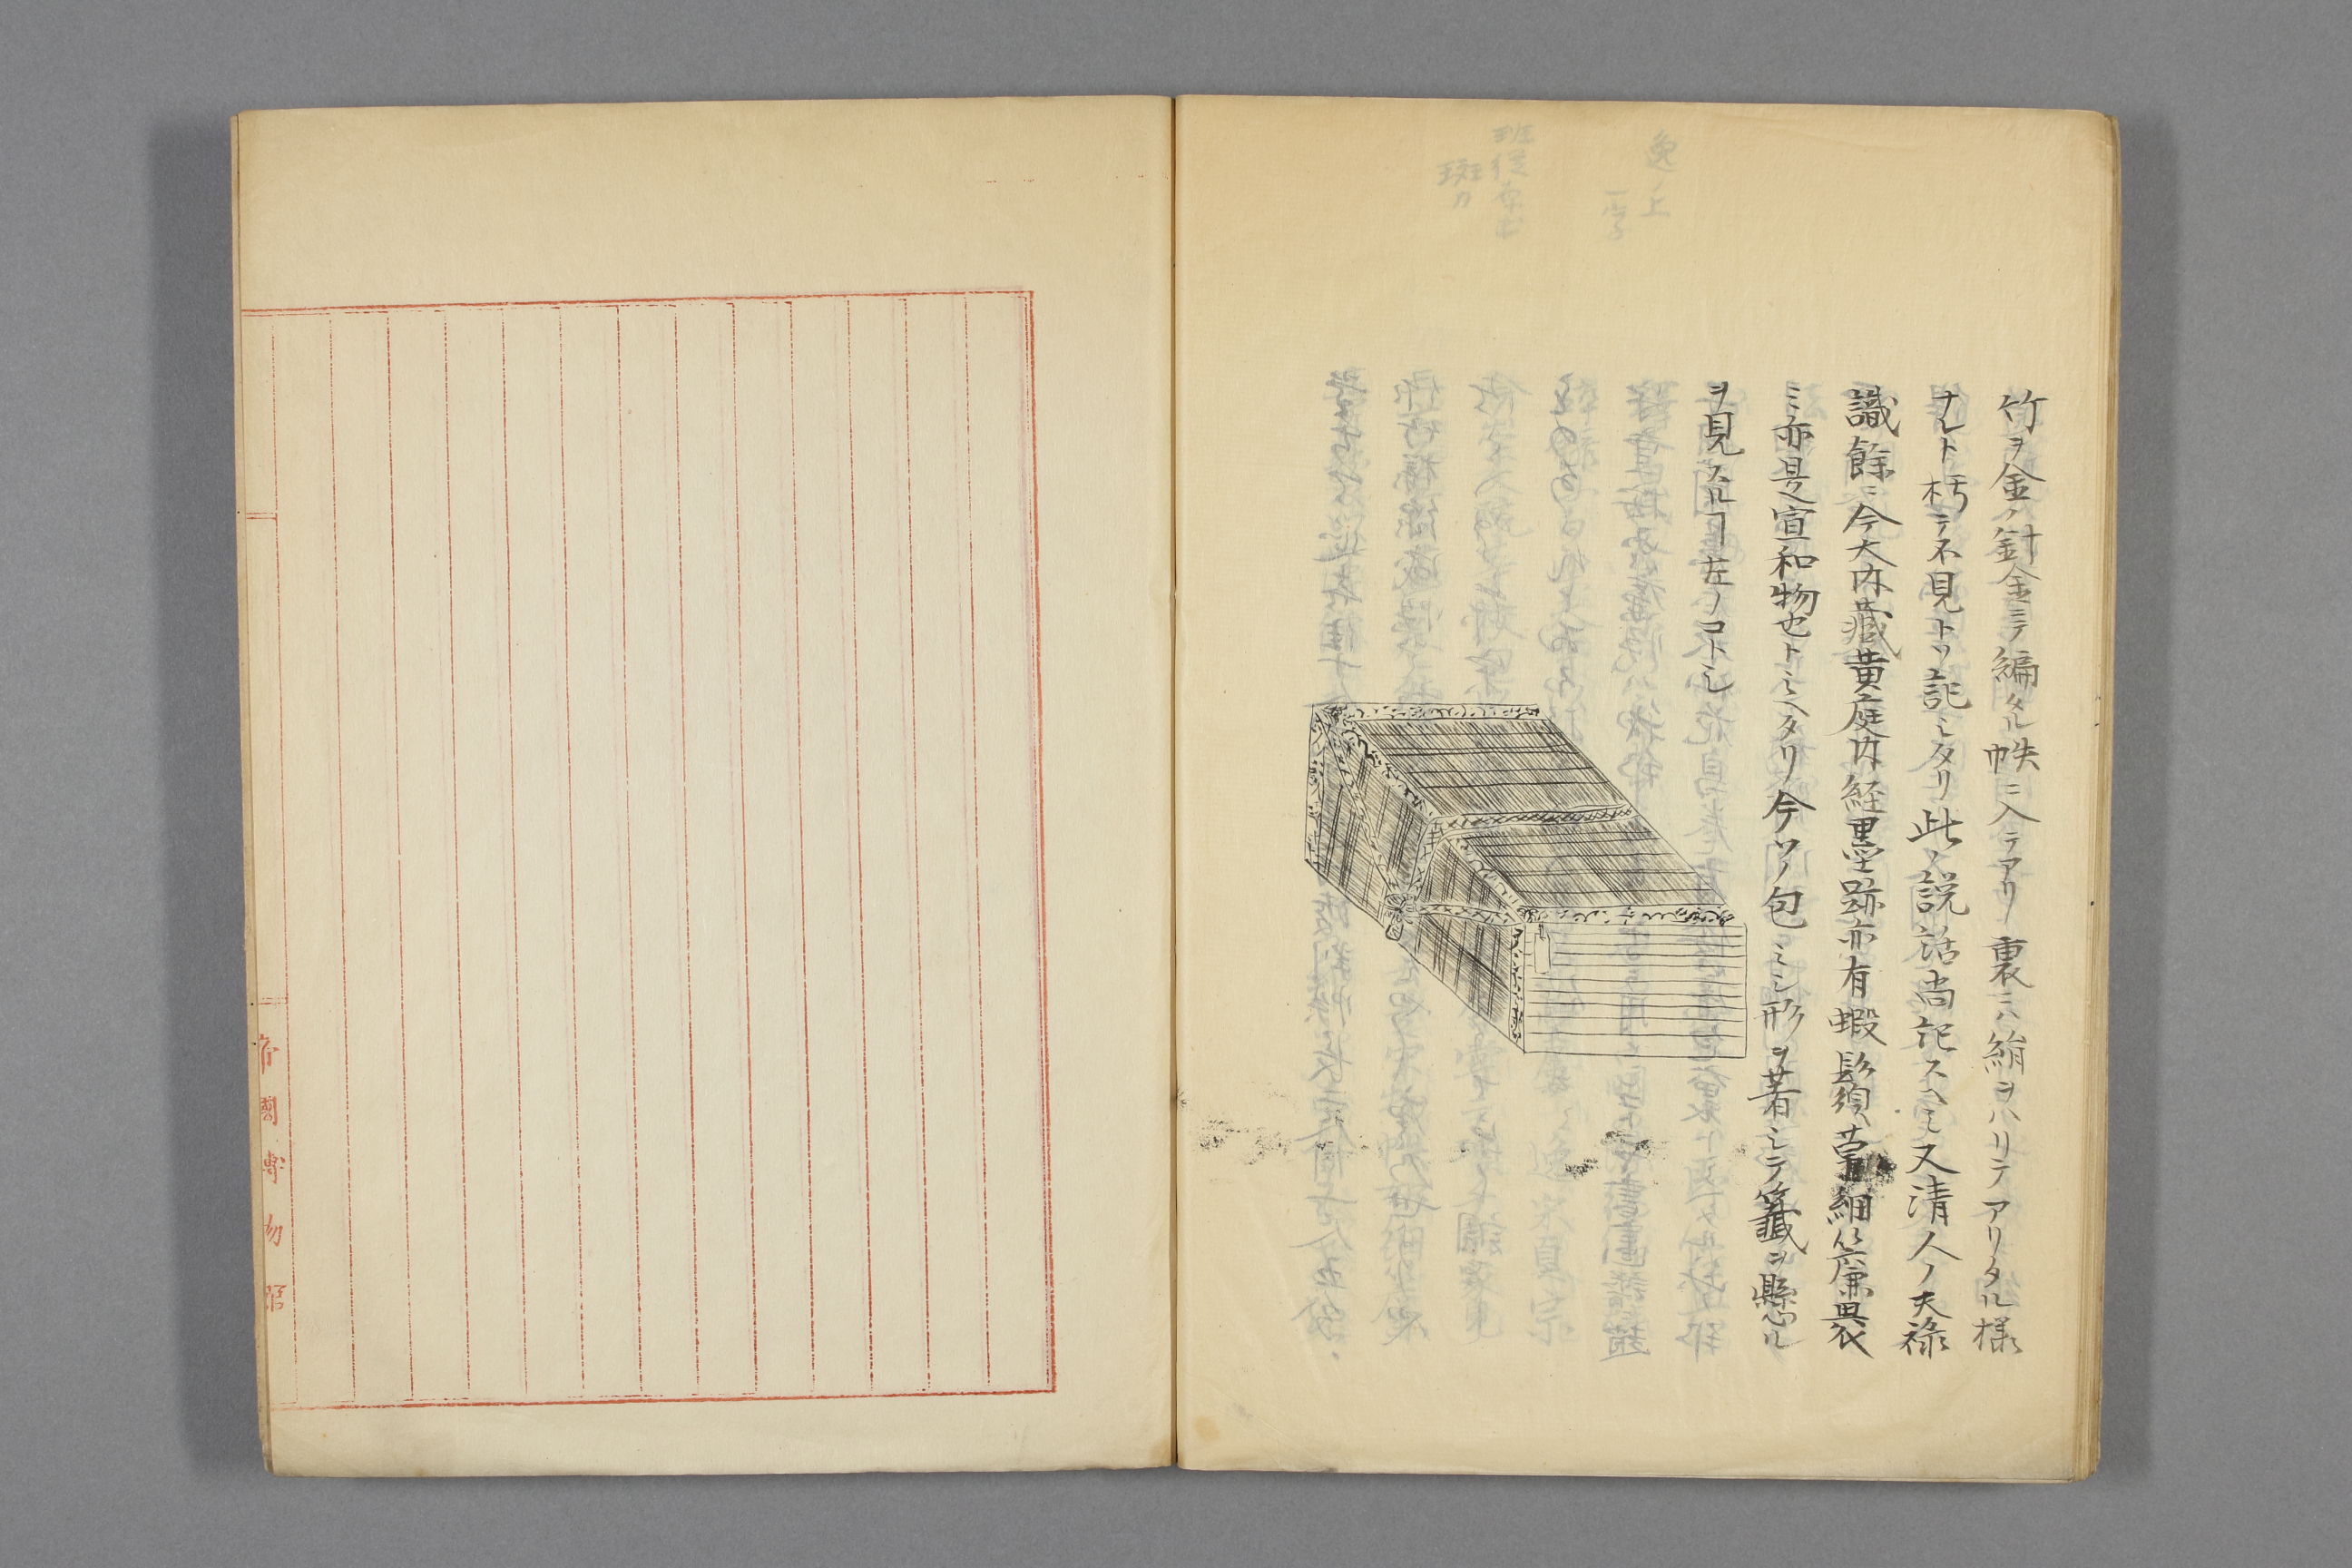 竹ヲ金ノ針金ニテ編タル帙ニ入テアリ裏ニハ絹ヲハリテアリタル様
ナレト朽テ不見トソ記シタリ此ノ説話尚記スヘシ又清人ノ天禄
識餘ニ今大内蔵黄庭内経墨跡亦有蝦鬚草細簾畏衣
ミ亦是宣和物也トミヘタリ今ソノ包ミシ形ヲ著シテ籤ヲ懸ル
ヲ見スルヿ左ノコトシ
帝國博物館